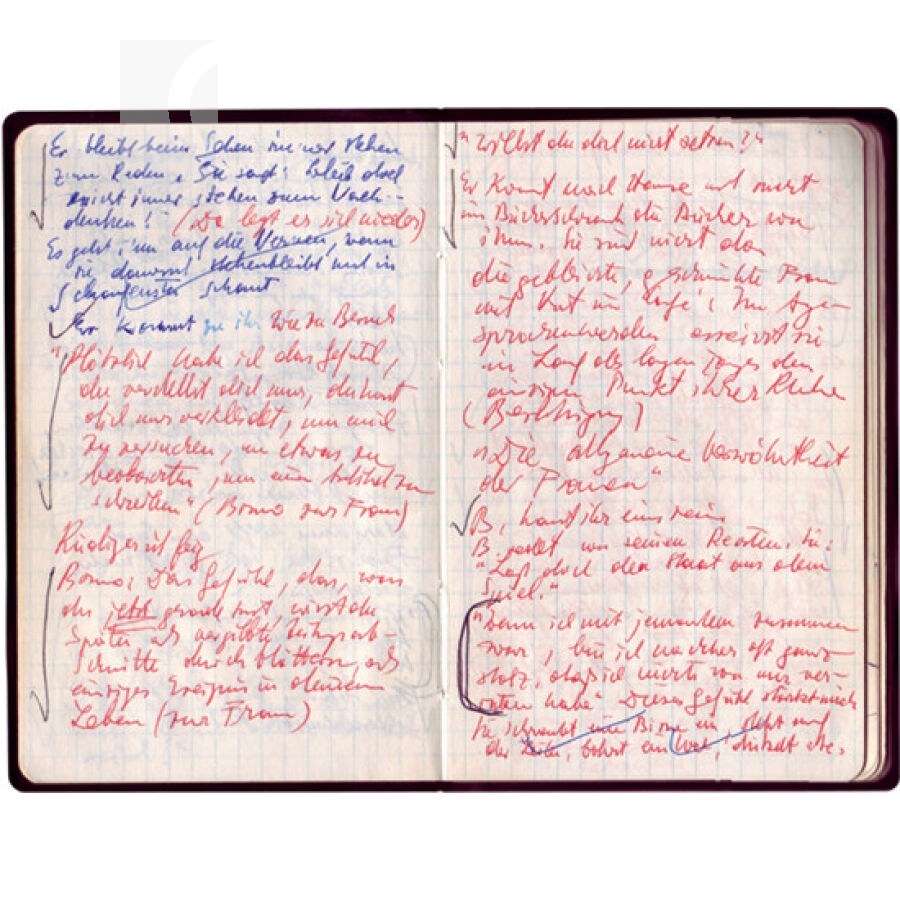 Er bleibt beim Gehen immer stehen
zum Reden. Sie sagt: Bleib doch
nicht immer stehen zum Nach-
denken! (Da legt er sich nieder)
Es geht ihm auf die Nerven, wenn
sie dauernd stehenbleibt und in
Schaufenster schaut
Er kommt zu ihr wie zu Besuch
"Plötzlich habe ich das Gefühl,
du verstellst dich nur, du hast
dich nur verkleidet, um mich
zu versuchen, um etwas zu
beobachten, um einen zu
schreiben" (Bruno zur Frau)
Rüdiger ist feig
Bruno: Das Gefühl, dass, was
du jetzt gerade tust, wirst du
später als vergilbte Zeitungsab-
schnitte durchblättern, als
einziges Ereignis in deinem
Leben (zur Frau)
"Willst du dich nicht setzen?"
Er kommt nach Hause und sucht
im Bücherschrank die Bücher von
ihm. Sie sind nicht da
die gebleichte, geschminkte Frau
mit Hut im Café: Im
sie
im Lauf des langen Tages den
einzigen Punkt ihrer Ruhe
(Berührung)
"Die allgemeine Verwöhntheit
der Frauen"
B. haut ihr eins rein
B. redet von seinen Rechten. Sie:
"Laß doch den Staat aus dem
Spiel."
"Wenn ich mit jemandem zusammen
war, bin ich nachher oft ganz
stolz, daß ich nichts von mir ver-
raten habe" Dieses Gefühl stärkt mich
Sie schraubt eine Birne ein, steht auf
der Leiter, bohrt ein Loch,